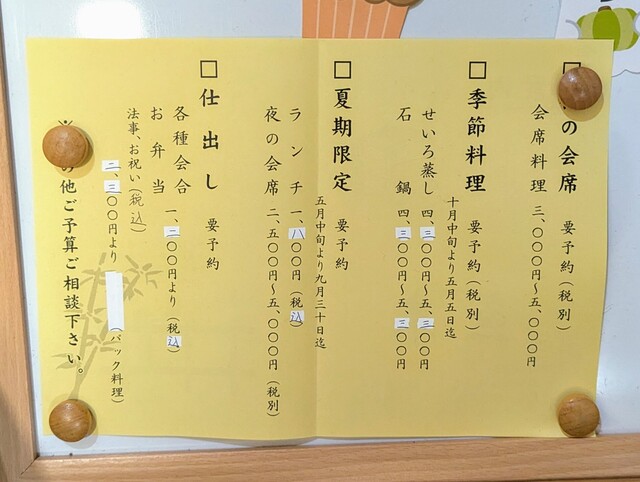 □ の会席 要予約(税別)
会席料理 三、〇〇〇円〜五、〇〇〇円
□ 季節料理 要予約(税別)
十月中旬より五月五日迄
せいろ蒸し 四、三〇〇円〜五、三〇〇円
石鍋 四、三〇〇円〜五、三〇〇円
□ 夏期限定 要予約
五月中旬より九月三十日迄
ランチ 一、八〇〇円(税込)
夜の会席 二、五〇〇円〜五、〇〇〇円(税別)
□ 仕出し 要予約
各種会合
お弁当 一、二〇〇円より(税込)
法事、お祝い(税込)
二、三〇〇円より (パック料理)
他ご予算ご相談下さい。